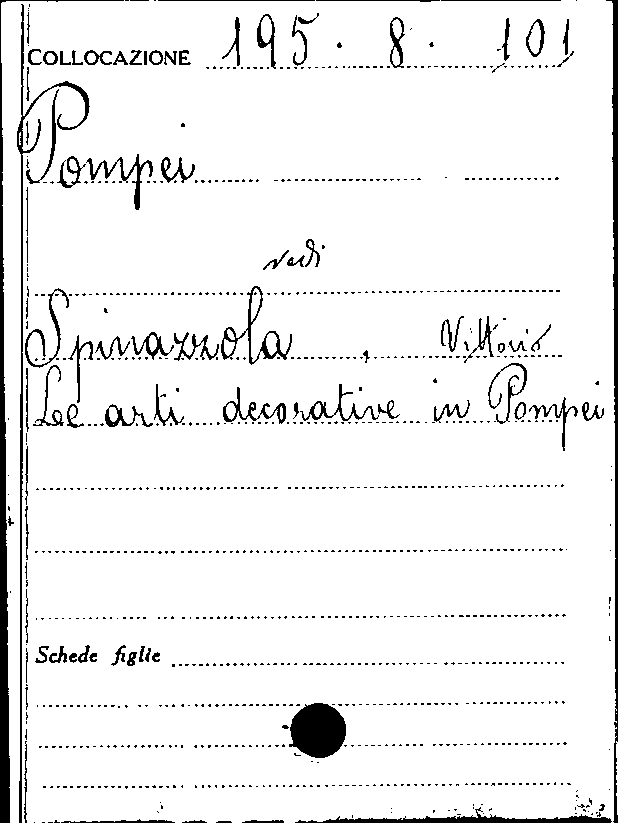 COLLOCAZIONE 195. 8. 101
Pompei
vedi
Spinazzola, Vittorio
Le arti decorative in Pompei
Schede figlie